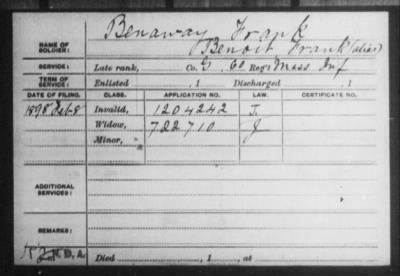 Benaway Frank
NAME OF SOLDIER: Benoit Frank (alias)
SERVICE: Late rank, Co. G, 60 Reg't Mass Inf
TERM OF SERVICE: Enlisted , 1 Discharged , 1
DATE OF FILING. CLASS. APPLICATION NO. LAW. CERTIFICATE NO.
1898 Feb 8 Invalid, 1204242 J.
Widow, 722710 J
Minor,
ADDITIONAL SERVICES:
REMARKS:
N.D.A. Died , 1 , at